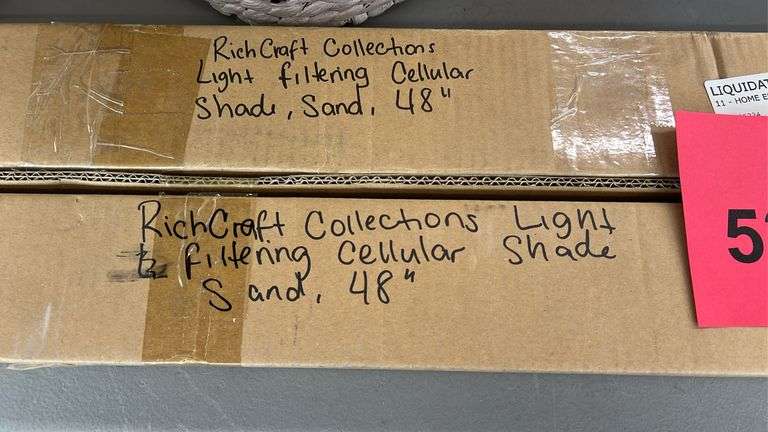 RichCraft Collections
Light filtering Cellular
Shade, Sand, 48"
LIQUIDAT
11 - HOME E
RichCraft Collections Light
filtering Cellular Shade
Sand, 48"
5